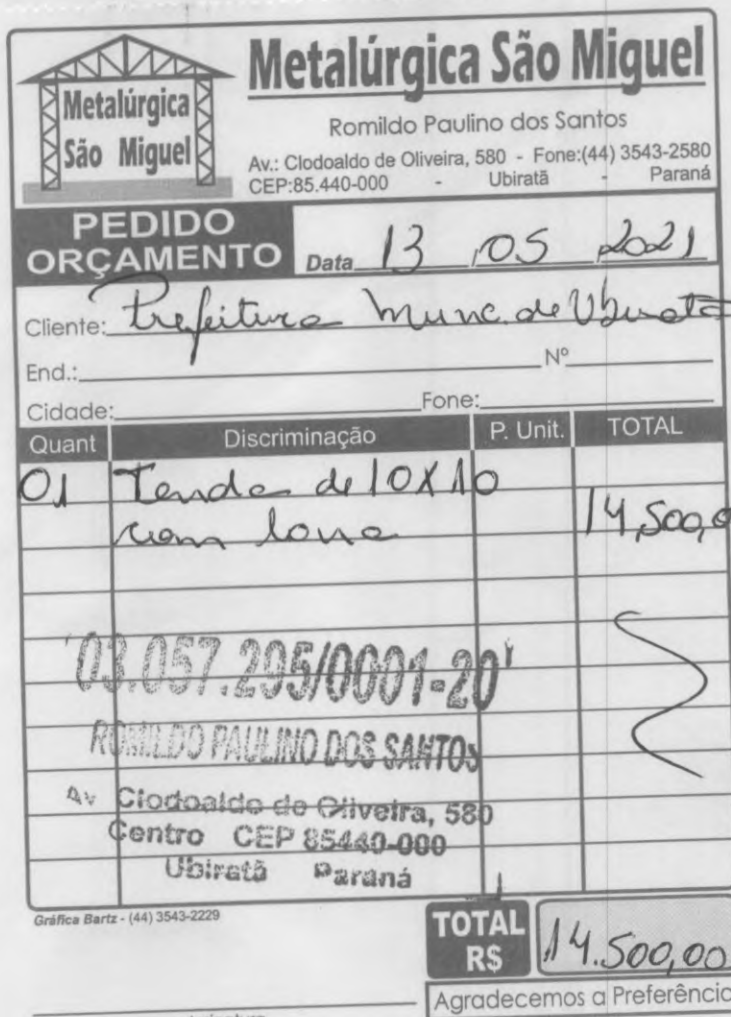 Metalúrgica São Miguel
Metalúrgica
São Miguel
Romildo Paulino dos Santos
Av.: Clodoaldo de Oliveira, 580 - Fone:(44) 3543-2580
CEP:85.440-000 - Ubiratã - Paraná
PEDIDO
ORÇAMENTO
Data 13 , 05 , 2021
Cliente: Prefeitura Munc. de Ubiratã
End.: Nº
Cidade: Fone:
Quant Discriminação P. Unit. TOTAL
01 Tenda de 10X10
com lona 14,500,0
03.057.295/0001-20
ROMILDO PAULINO DOS SANTOS
Av Clodoaldo de Oliveira, 580
Centro CEP 85440-000
Ubiratã Paraná
Gráfica Bartz - (44) 3543-2229
TOTAL
R$ 14.500,00
Agradecemos a Preferência